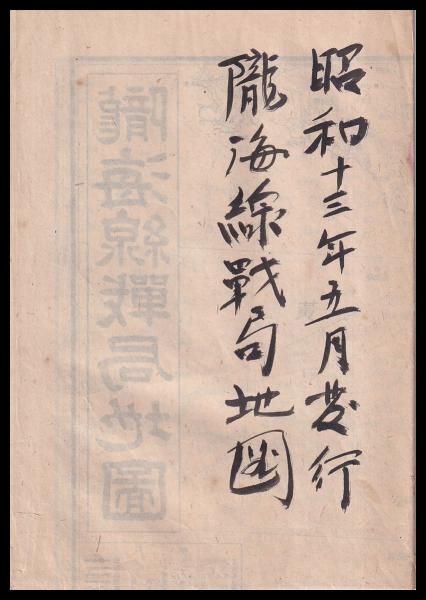 昭和十三年五月発行
隴海線戦局地図
隴海線戰局地圖